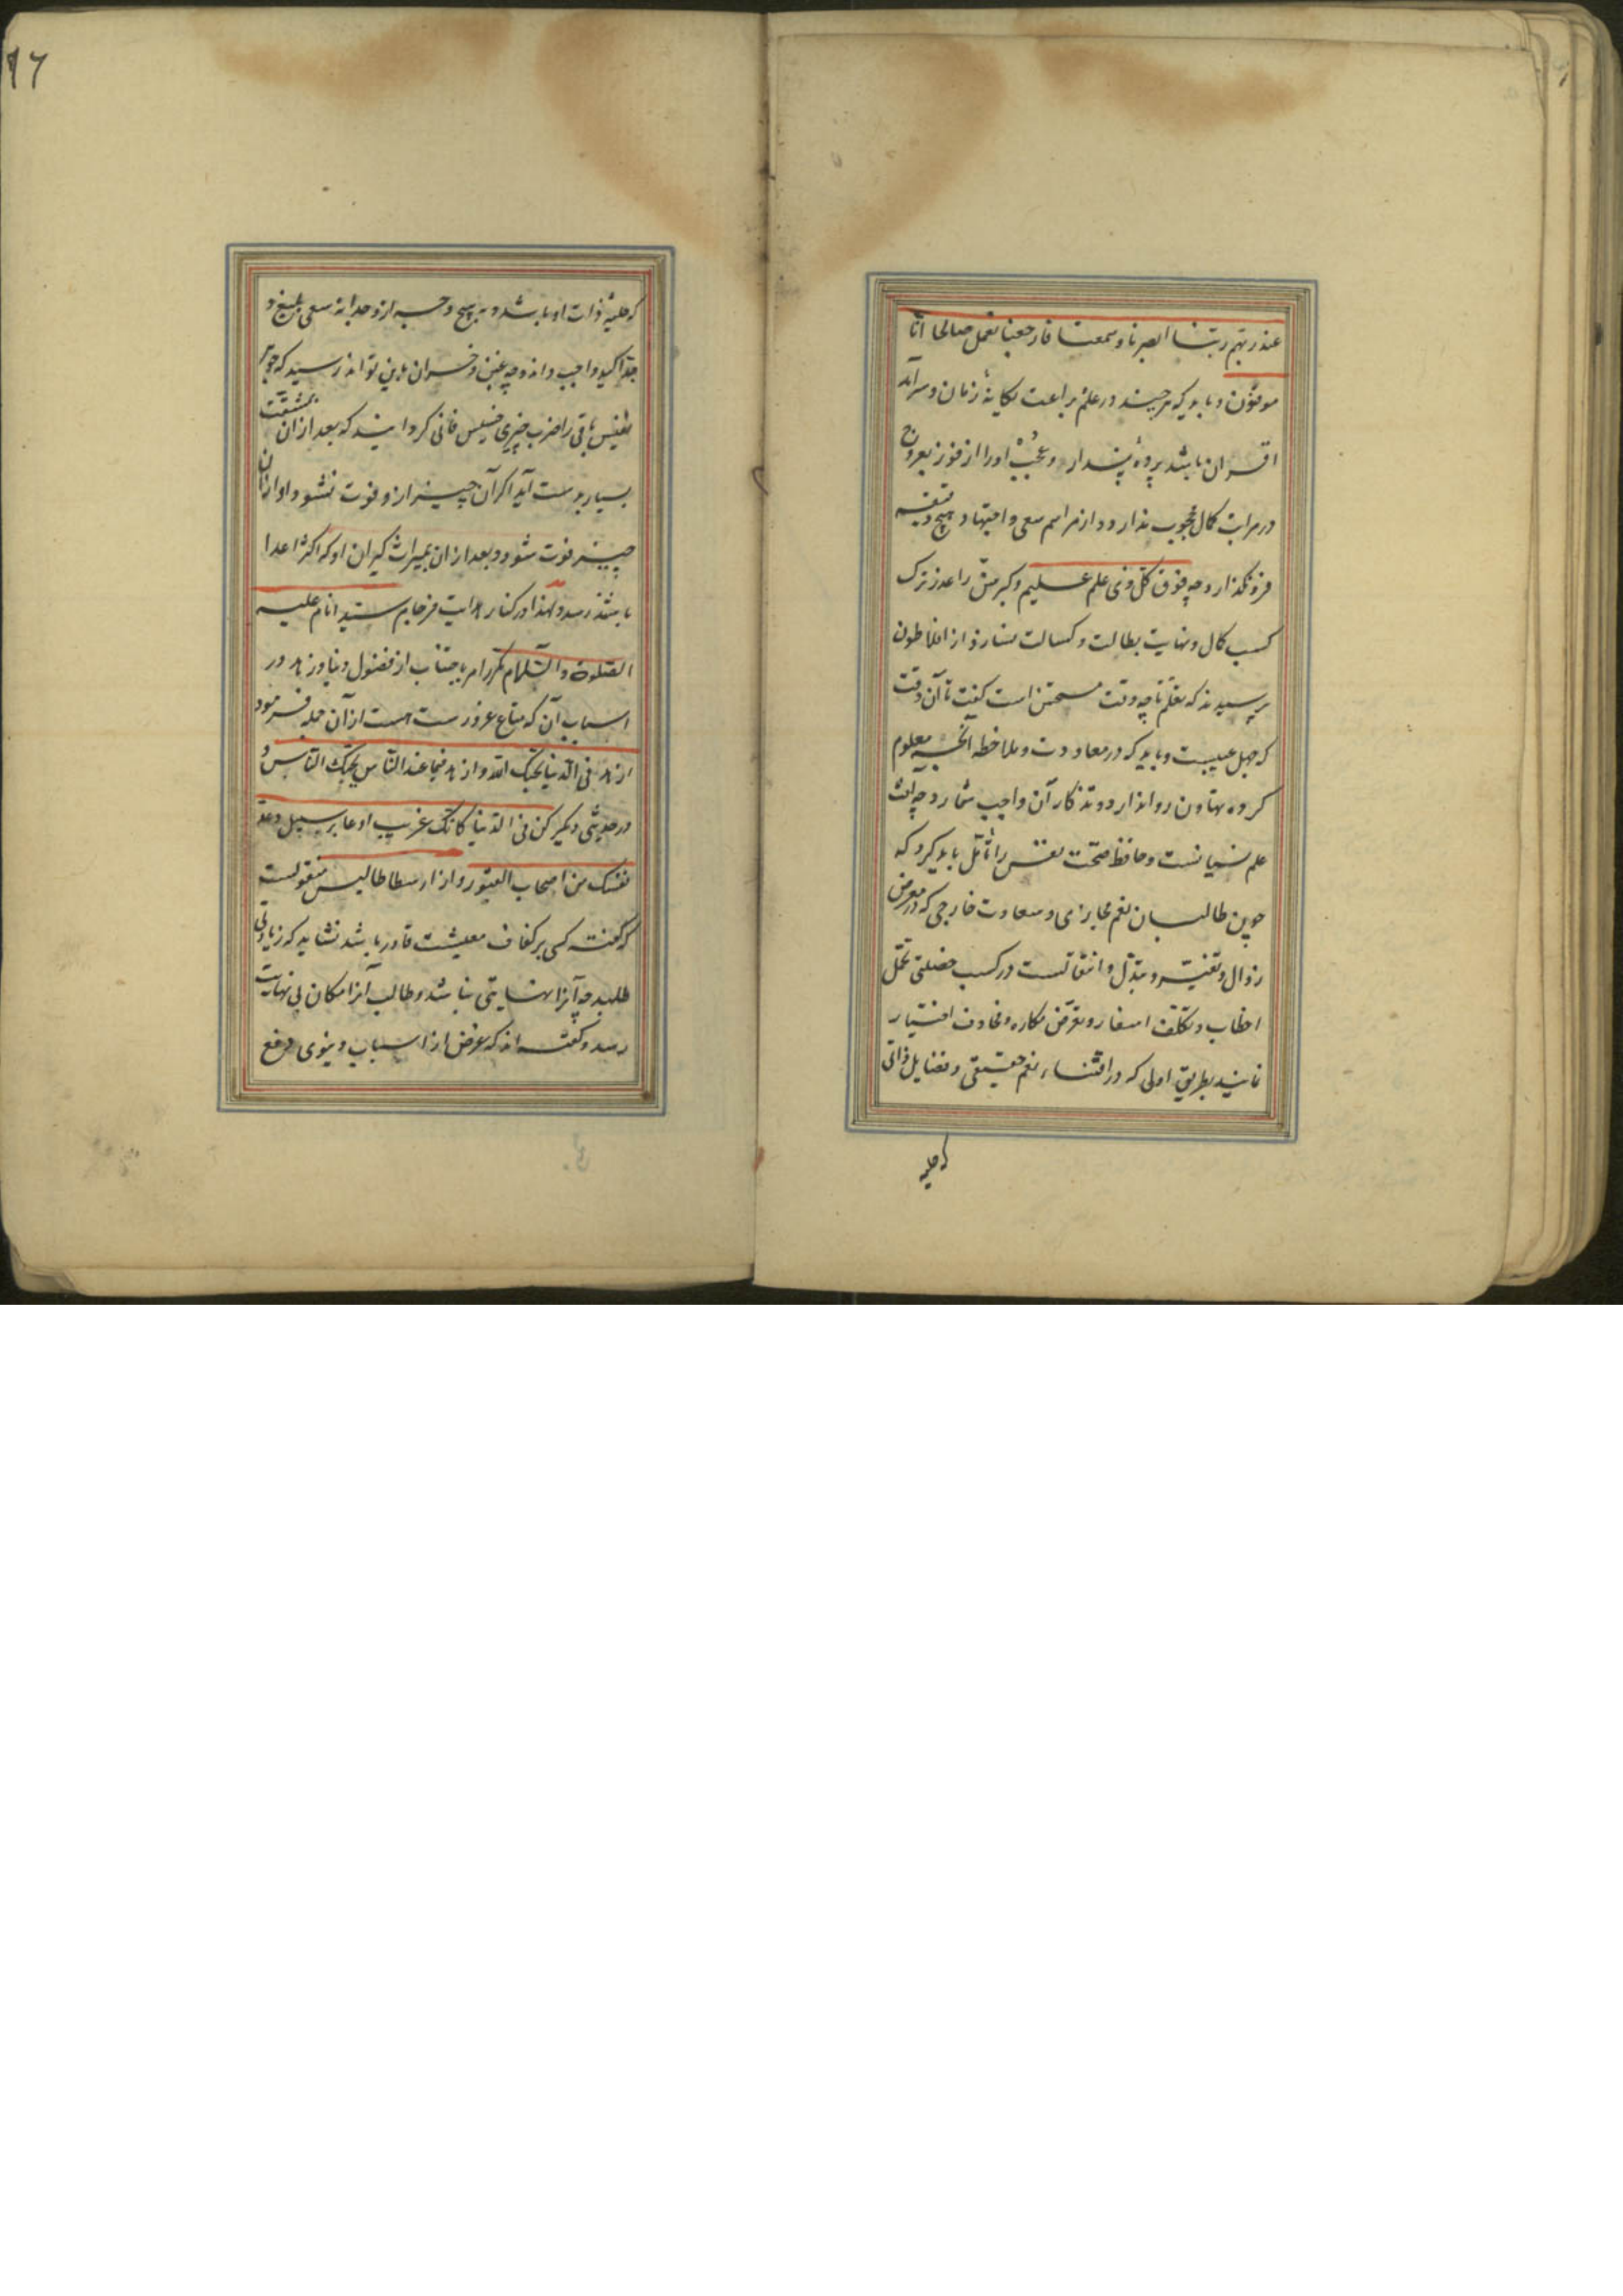 عند ربّهم ربّنا ابصرنا و سمعنا فارجعنا نعمل صالحا انّا
موقنون و باید که هرچند در علم براعت یکانهٔ زمان و سرآمد
اقران باشد پردهٔ پندار و عُجب اورا از فوز بعروج
در مراتب کمال محجوب ندارد و از مراسم سعی و اجتهاد هیچ دقیقه
فرونگذارد چه فوق کلّ ذی علم علیم و کبر سنّ را عذر ترک
کسب کمال و نهایت بطالت و کسالت نسازد از افلاطون
پرسیدند که تعلّم تا چه وقت مستحسن است کفت تا آن وقت
که جهل عیبست و باید که در معاودت و ملاحظه آنچه معلوم
کرده تهاون روا ندارد و تذکار آن واجب شمارد چه آفت
علم نسیانست و حافظ صحّت نفس را تأمّل باید کرد که
چون طالبان نعم مجازی و سعادت خارجی که در معرض
زوال و تغیّر و تبدّل و انتقالست در کسب تحمّل
اخطار و تکلّف اسفار و تعرّض مکاره و مخاوف اختیار
نمایند بطریق اولی که در اقتناء نعم حقیقی و فضایل ذاتی
که حلیه
١٦
که حلیهٔ ذات او باشد و به هیچ وجه ازو جدا نه سعی بلیغ و
جدّ اکید واجب داند و چه غبن و خسران باین تواند رسید که جوهر
نفیس باقی را ضرب چیزی خسیس فانی کردانند که بعد از آن بمشقّت
بسیار بدست آید اکر آن چیز ازو فوت نشود او از آن
چیز فوت شود و بعد از آن بمیراث کیران او که اکثر اعدا
باشند رسد و لهذا در کنار هدایت فرجام سیّد انام علیه
الصّلوة و السّلام مکرّر امر باجتناب از فضول دنیا و زهد در
اسباب آن که متاع غرورست هست از آن جمله فرمود
ازهد فی الدّنیا یحبّک اللّه و ازهد فیما عند النّاس یحبّک النّاس و
در حدیثی دیکر کن فی الدّنیا کانّک غریب او عابر سبیل و عدّ
نفسک من اصحاب القبور و از ارسطاطالیس منقولست
که کفته کسی بر کفاف معیشت قادر باشد نشاید که زیادتی
طلبد چه آنرا نهایتی نباشد و طالب آنرا مکاره بی نهایت
رسد و کفته اند که غرض از اسباب دنیوی دفع